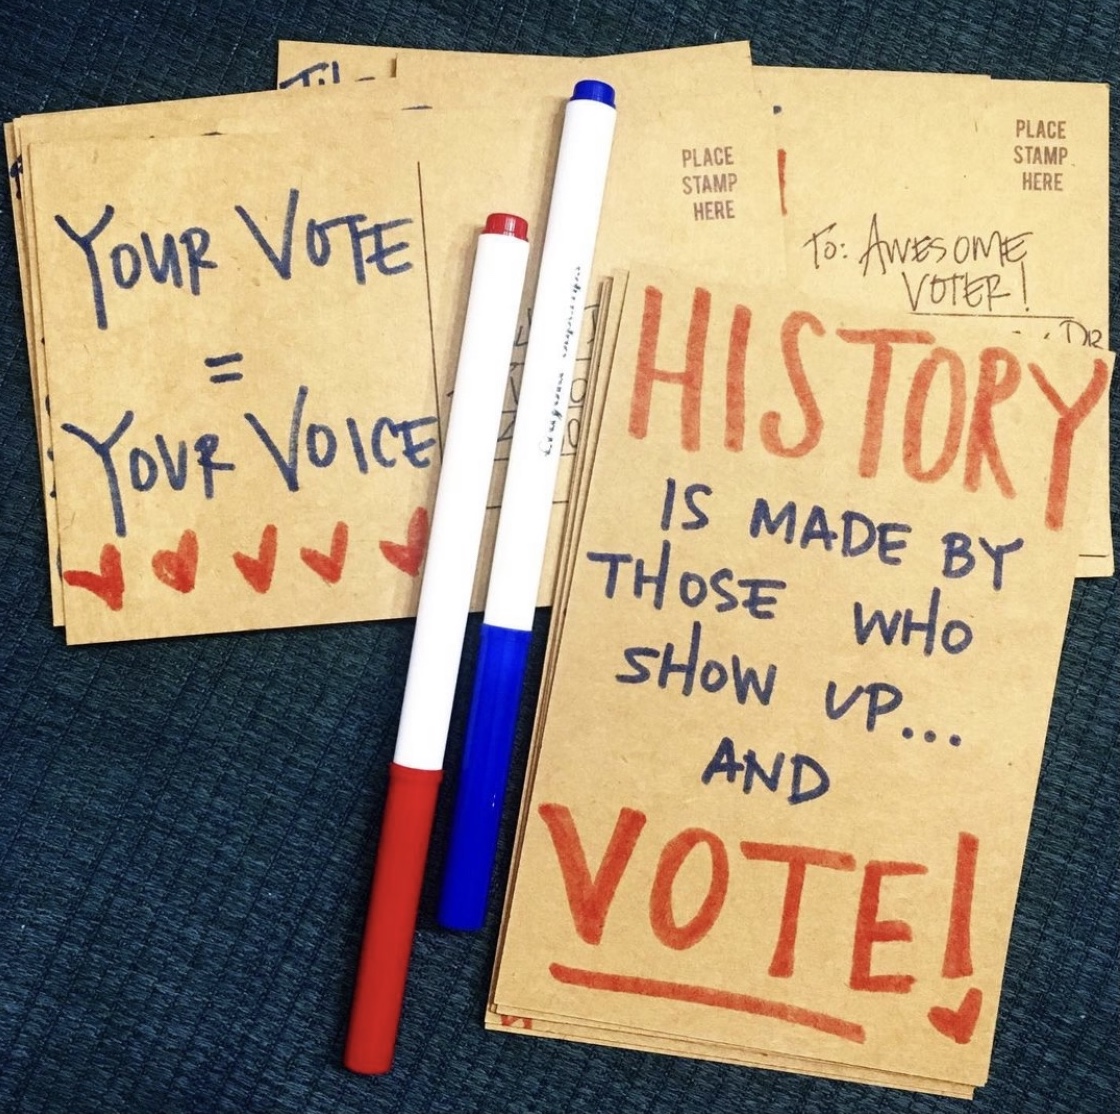 YOUR VOTE
=
YOUR VOICE
PLACE
STAMP
HERE
PLACE
STAMP
HERE
To: AWESOME
VOTER!
DR
HISTORY
IS MADE BY
THOSE WHO
SHOW UP...
AND
VOTE!